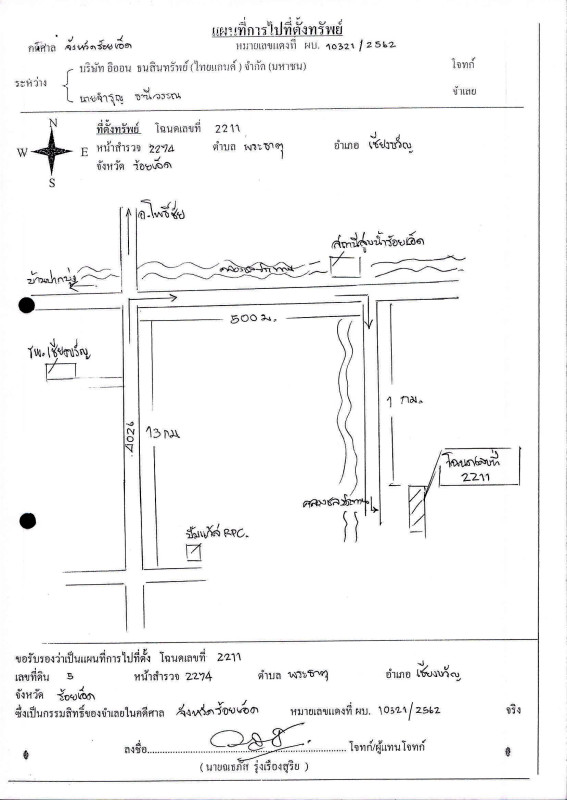 แผนที่การไปที่ตั้งทรัพย์
คดีศาล จังหวัดร้อยเอ็ด หมายเลขแดงที่ ผบ. 10321/2562
ระหว่าง บริษัท อิออน ธนสินทรัพย์ (ไทยแลนด์) จำกัด (มหาชน) โจทก์
จำเลย
N
W E
S
ที่ตั้งทรัพย์ โฉนดเลขที่ 2211
หน้าสำรวจ 2274 ตำบล พระธาตุ อำเภอ เชียงขวัญ
จังหวัด ร้อยเอ็ด
อ.โพธิ์ชัย
สถานีสูบน้ำร้อยเอ็ด
คลองชลประทาน
500 ม.
รพ.เชียงขวัญ
1 กม.
4026
13 กม
โฉนดเลขที่
2211
คลองชลประทาน
ปั๊มแก๊ส RPC.
ขอรับรองว่าเป็นแผนที่การไปที่ตั้ง โฉนดเลขที่ 2211
เลขที่ดิน 5 หน้าสำรวจ 2274 ตำบล พระธาตุ อำเภอ เชียงขวัญ
จังหวัด ร้อยเอ็ด
ซึ่งเป็นกรรมสิทธิ์ของจำเลยในคดีศาล จังหวัดร้อยเอ็ด หมายเลขแดงที่ ผบ. 10321/2562 จริง
ลงชื่อ โจทก์/ผู้แทนโจทก์
(นายณชภัส รุ่งเรืองสุริย)